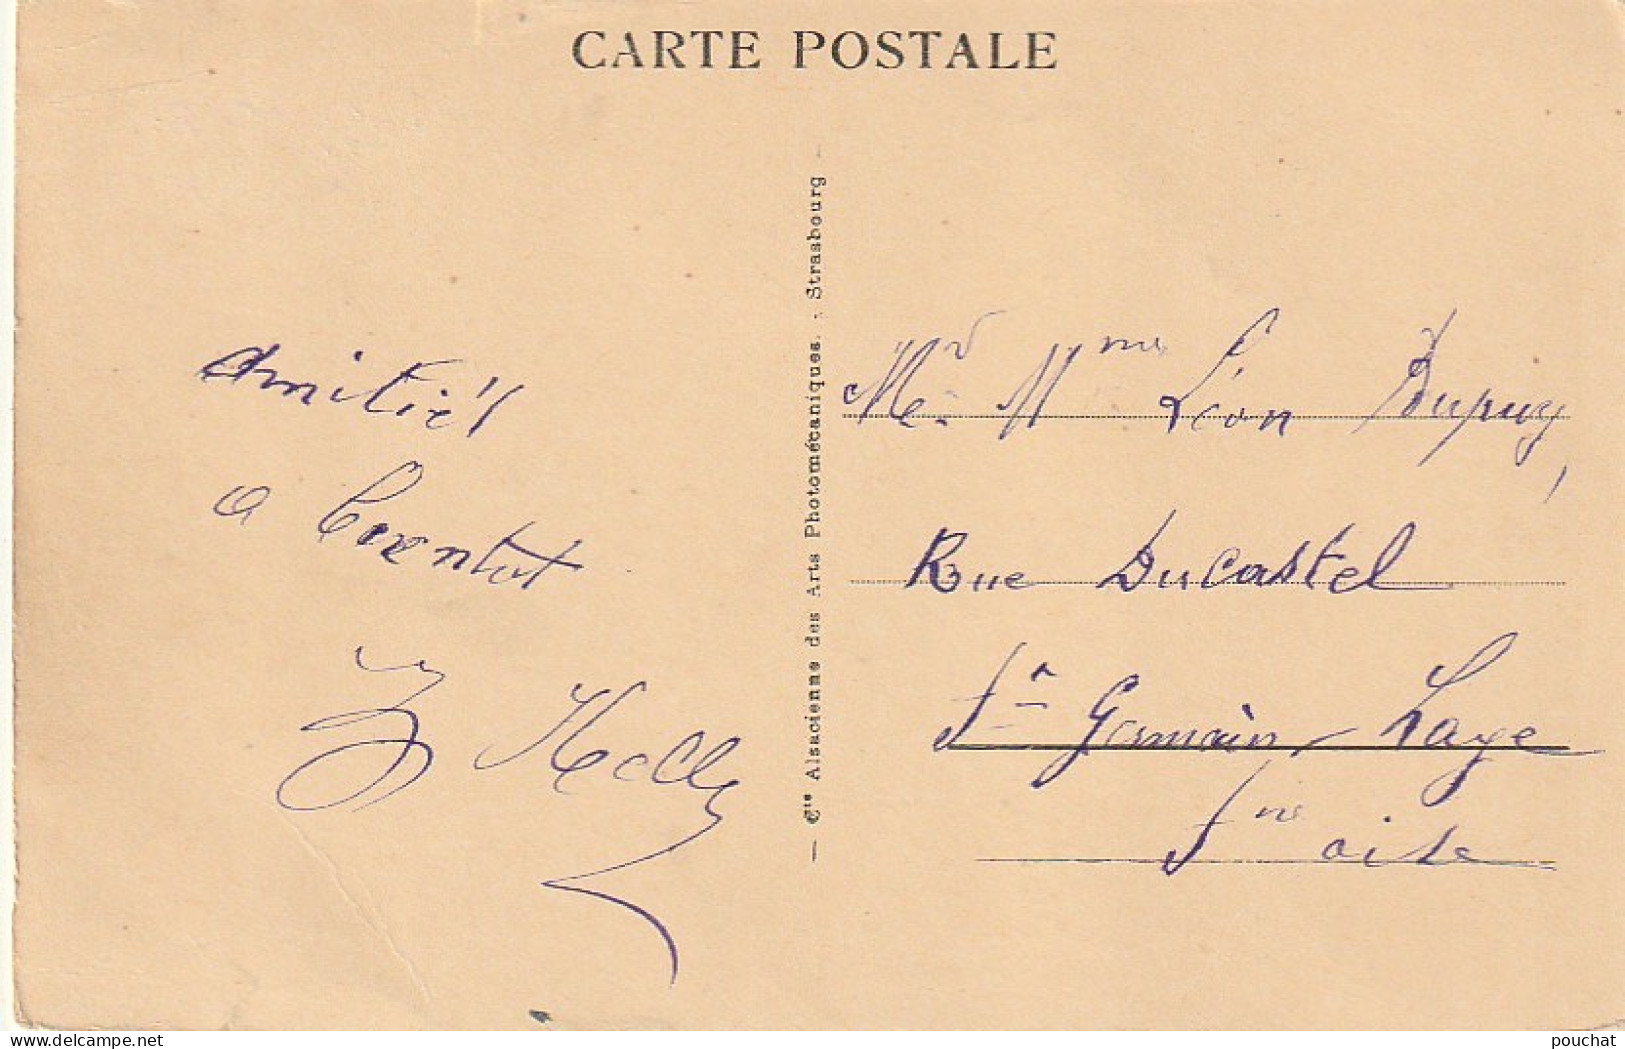 CARTE POSTALE
Amitiés
a bientot
Kelly
— Cie Alsacienne des Arts Photomécaniques. - Strasbourg -
Mr Mme Léon Dupuy,
Rue Ducastel
St Germain Laye
Sne oise
www.delcampe.net
pouchat